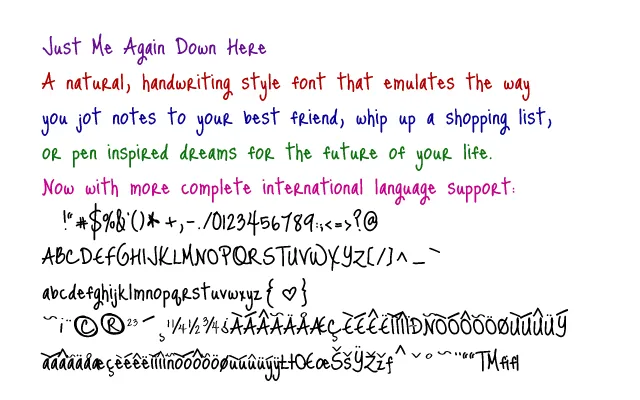 Just Me Again Down Here
A natural, handwriting style font that emulates the way
you jot notes to your best friend, whip up a shopping list,
or pen inspired dreams for the future of your life.
Now with more complete international language support:
!"#$%&'()*+,-./0123456789:;<=>?@
ABCDEFGHIJKLMNOPQRSTUVWXYZ[/]^_`
abcdefghijklmnopqrstuvwxyz{♡}
¨¡¨©®²³¯¸¹¼½¾¿ÀÁÂÃÄÅÆÇÈÉÊËÌÍÎÏÐÑÒÓÔÕÖØÙÚÛÜÝ
àáâãäåæçèéêëìíîïñòóôõöøùúûüýÿŁłŒœŠšŸŽžƒˆˇ˘˚˜¨“”TMfifl